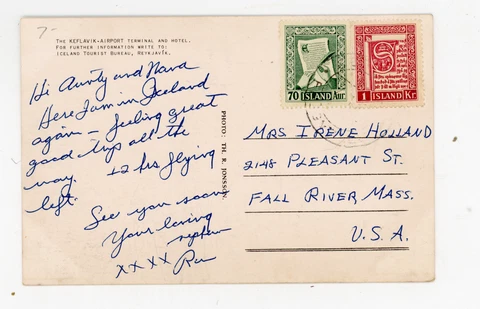 7-
THE KEFLAVIK-AIRPORT TERMINAL AND HOTEL.
FOR FURTHER INFORMATION WRITE TO:
ICELAND TOURIST BUREAU, REYKJAVÍK.
Hi Aunty and Nana
Here I am in Iceland
again - feeling great
good trip all the
way. 12 hrs flying
left.
See you soon
Your loving
nephew
xxxx
PHOTO: TH. R. JONSSON
70 ÍSLAND Aur.
1 ÍSLAND Kr.
MRS IRENE HOLLAND
2148 PLEASANT ST.
FALL RIVER MASS.
U.S.A.